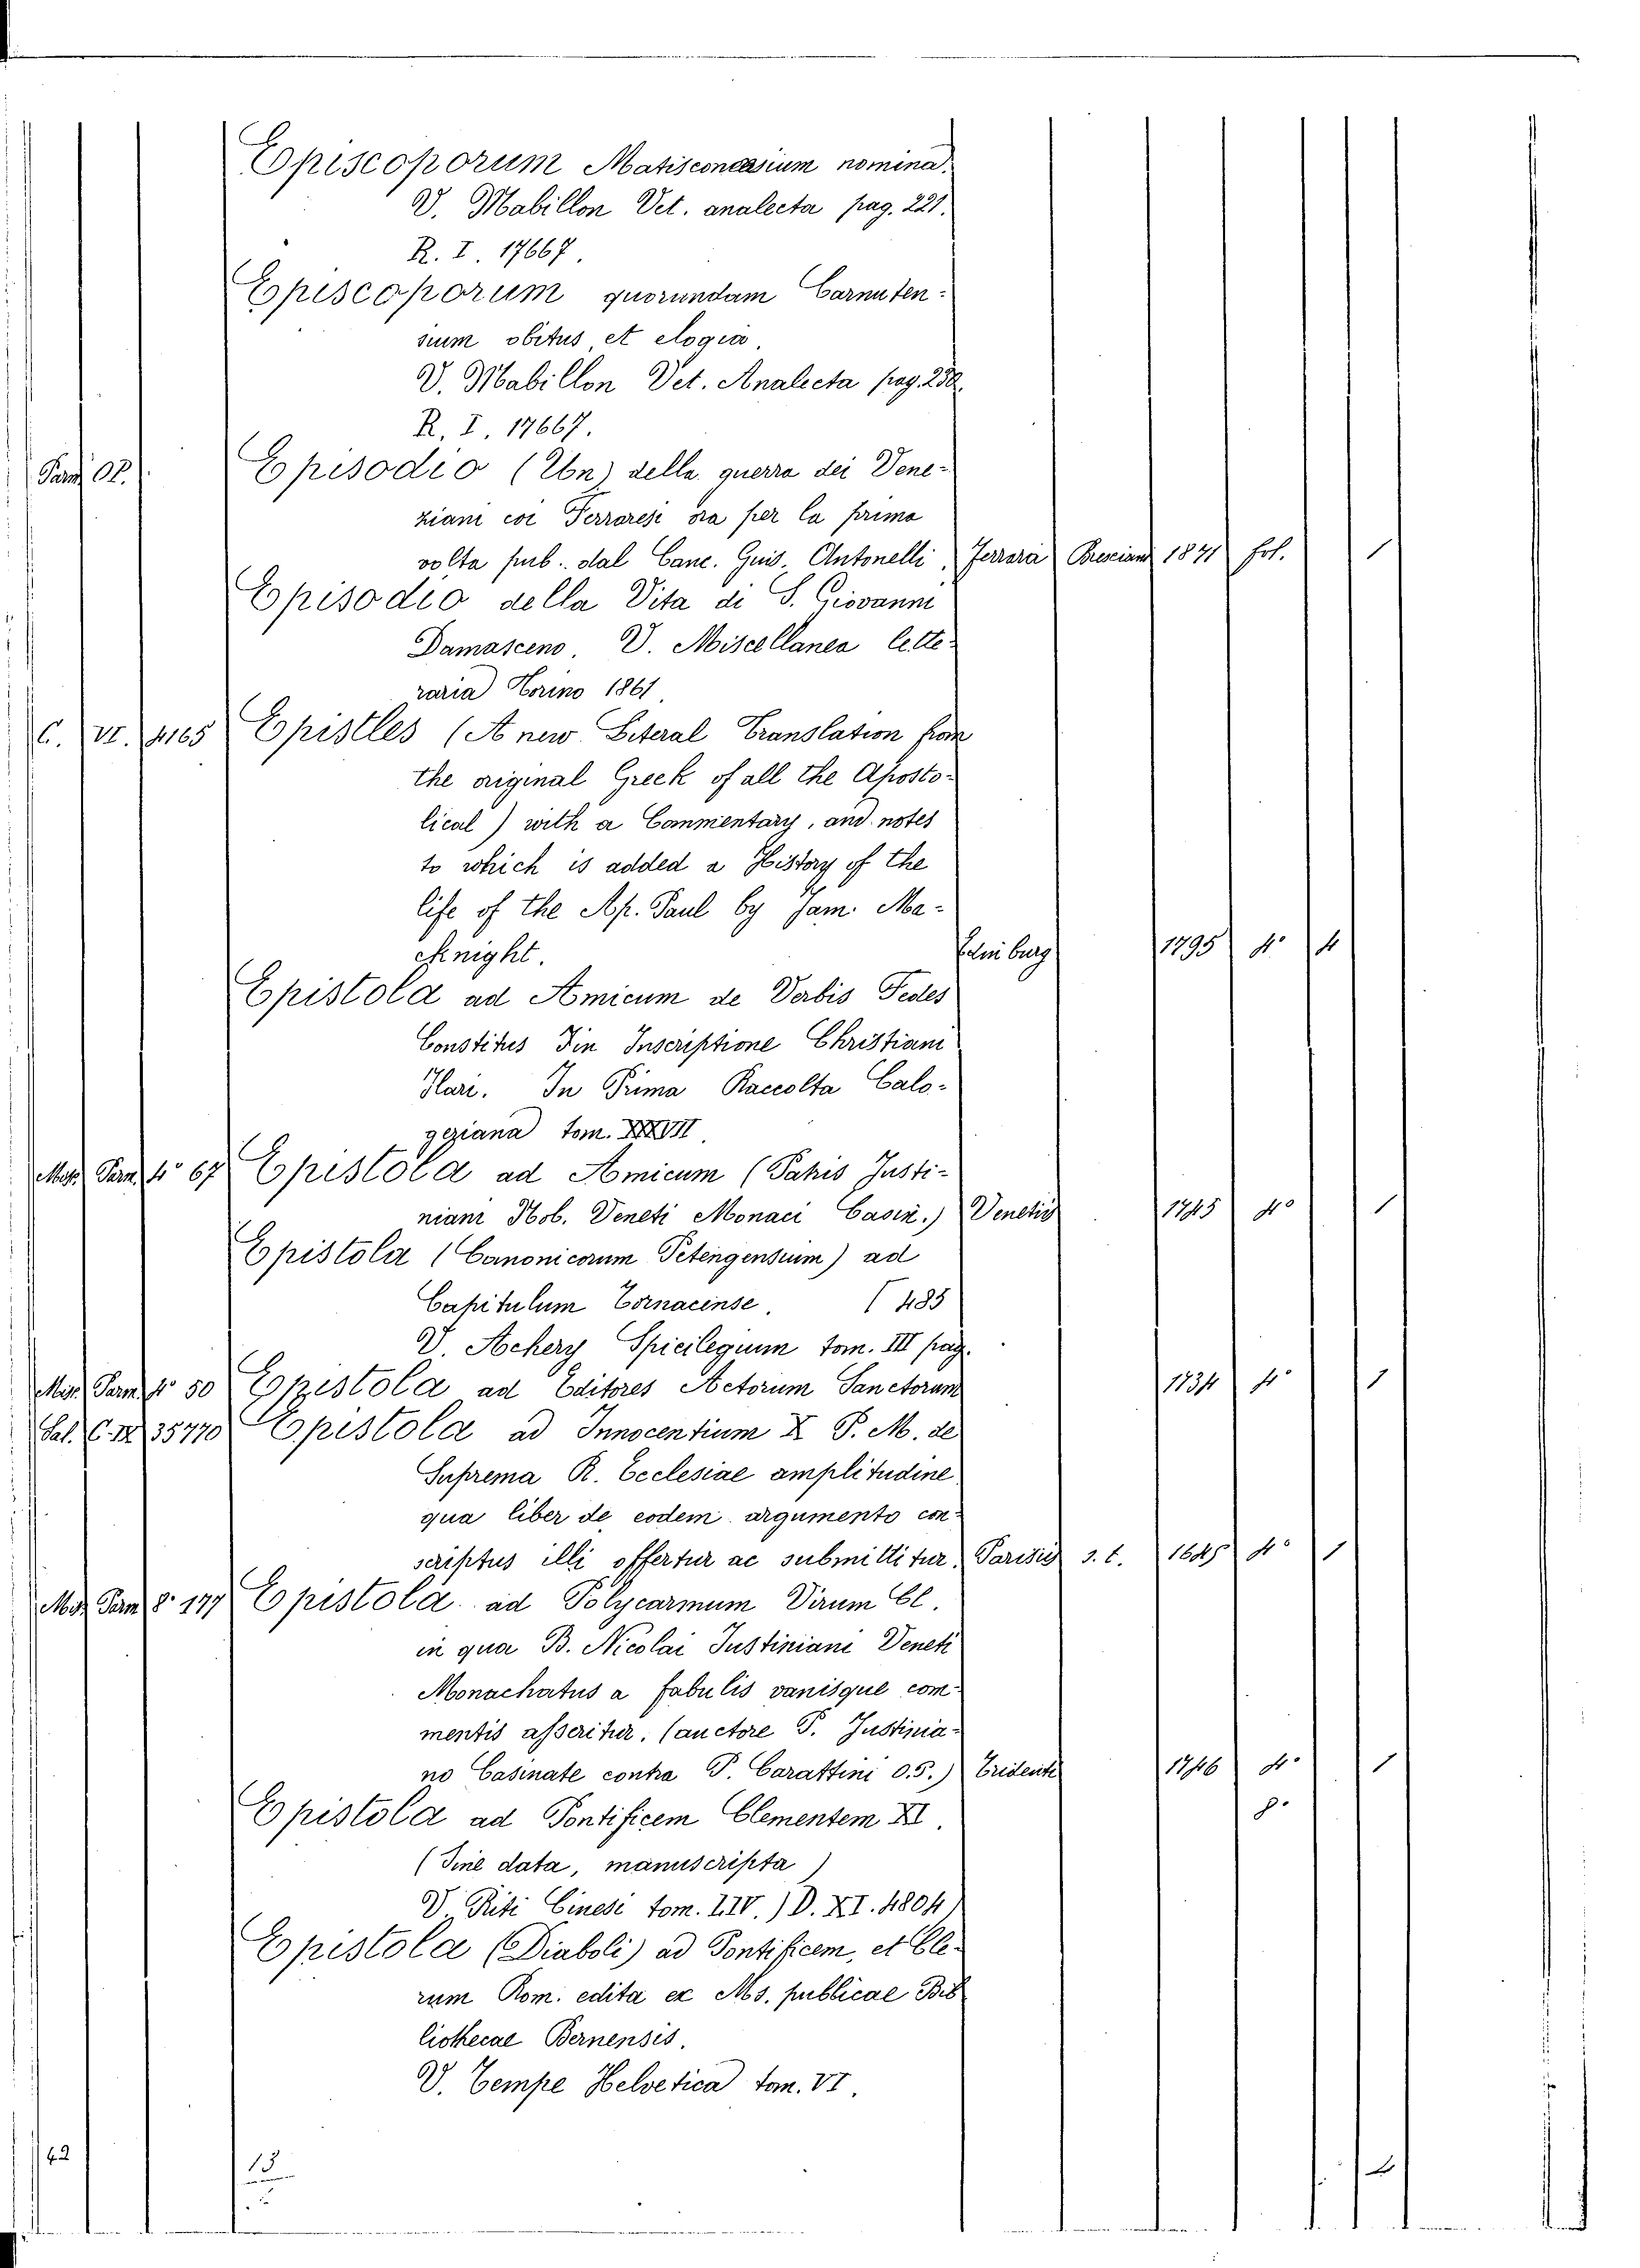 Episcoporum Matisconensium nomina.
V. Mabillon Vet. analecta pag. 221.
R. I. 17667.
Episcoporum quorundam Carnuten-
sium obitus, et elogia.
V. Mabillon Vet. Analecta pag. 232.
R. I. 17667.
Episodio (Un) della guerra dei Vene-
ziani coi Ferraresi ora per la prima
volta pub. dal Canc. Gius. Antonelli. Ferrara Bresciani 1841 fol. 1
Episodio della Vita di S. Giovanni
Damasceno. V. Miscellanea lette-
raria Torino 1861
C. VI. 4165 Epistles (A new Literal Translation from
the original Greek of all the Aposto-
lical) with a Commentary, and notes
to which is added a History of the
life of the Ap. Paul by Jam. Ma-
cknight. Edinburg 1795 4º 4
Epistola ad Amicum de Verbis Fedes
Constitus in Inscriptione Christiani
Hari. In Prima Raccolta Calo-
geriana tom.
Misc. Parm. 4º 67 Epistola ad Amicum (Patris Justi-
niani Nob. Veneti Monaci Casin.) Venetiis 1745 4º 1
Epistola (Canonicorum Petengensium) ad
Capitulum Tornacense. [485
V. Achery Spicilegium tom. III pag.
Misc. Parm. 4º 50 Epistola ad Editores Actorum Sanctorum 1734 4º 1
Sal. C. IX 35770 Epistola ad Innocentium X P. M. de
Suprema R. Ecclesiae amplitudine
qua liber de eodem argumento con-
scriptus illi offertur ac submittitur. Parisiis s. t. 1645 4º 1
Misc. Parm 8º 177 Epistola ad Polycarmum Virum Cl.
in qua B. Nicolai Justiniani Veneti
Monachatus a fabulis vanisque com-
mentis asseritur. (auctore P. Justinia-
no Casinate contra P. Carattini O.S.) Tridente 1746 4º 1
Epistola ad Pontificem Clementem XI. 8º
(Sine data, manuscripta)
V. Riti Cinesi tom. LIV.) D. XI. 4804)
Epistola (Diaboli) ad Pontificem, et Cle-
rum Rom. edita ex Ms. publicae Bib
liothecae Bernensis.
V. Tempe Helvetica tom. VI.
13